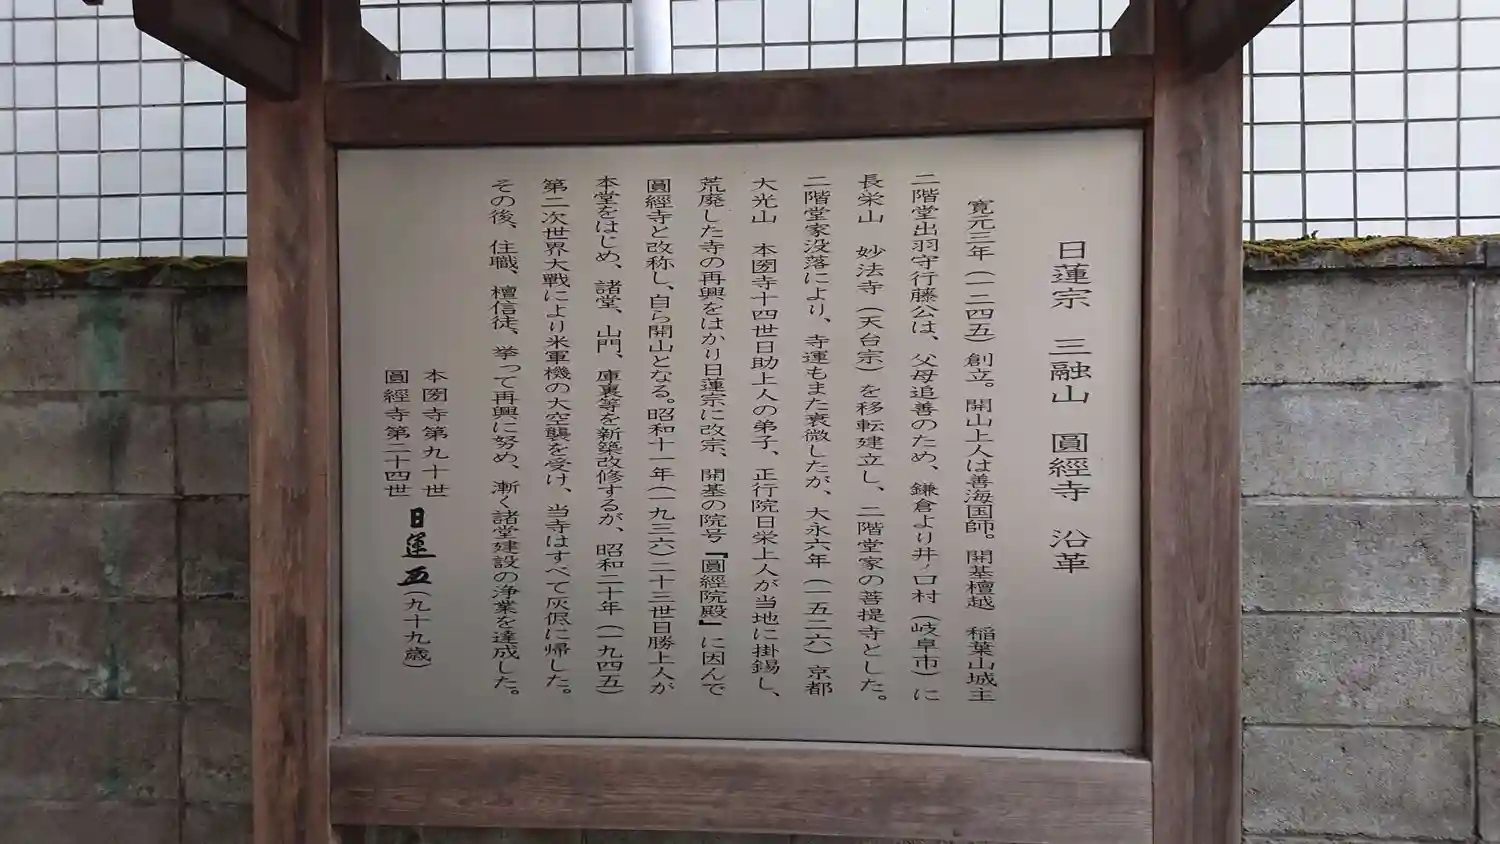 日蓮宗　三融山　圓經寺　沿革
寛元三年（一二四五）創立。開山上人は善海国師。開基檀越　稲葉山城主
二階堂出羽守行藤公は、父母追善のため、鎌倉より井ノ口村（岐阜市）に
長栄山　妙法寺（天台宗）を移転建立し、二階堂家の菩提寺とした。
二階堂家没落により、寺運もまた衰微したが、大永六年（一五二六）京都
大光山　本圀寺十四世日助上人の弟子、正行院日栄上人が当地に掛錫し、
荒廃した寺の再興をはかり日蓮宗に改宗、開基の院号『圓經院殿』に因んで
圓經寺と改称し、自ら開山となる。昭和十一年（一九三六）二十三世日勝上人が
本堂をはじめ、諸堂、山門、庫裏等を新築改修するが、昭和二十年（一九四五）
第二次世界大戦により米軍機の大空襲を受け、当寺はすべて灰燼に帰した。
その後、住職、檀信徒、挙って再興に努め、漸く諸堂建設の浄業を達成した。
本圀寺第九十世
圓經寺第二十四世　日蓮（九十九歳）